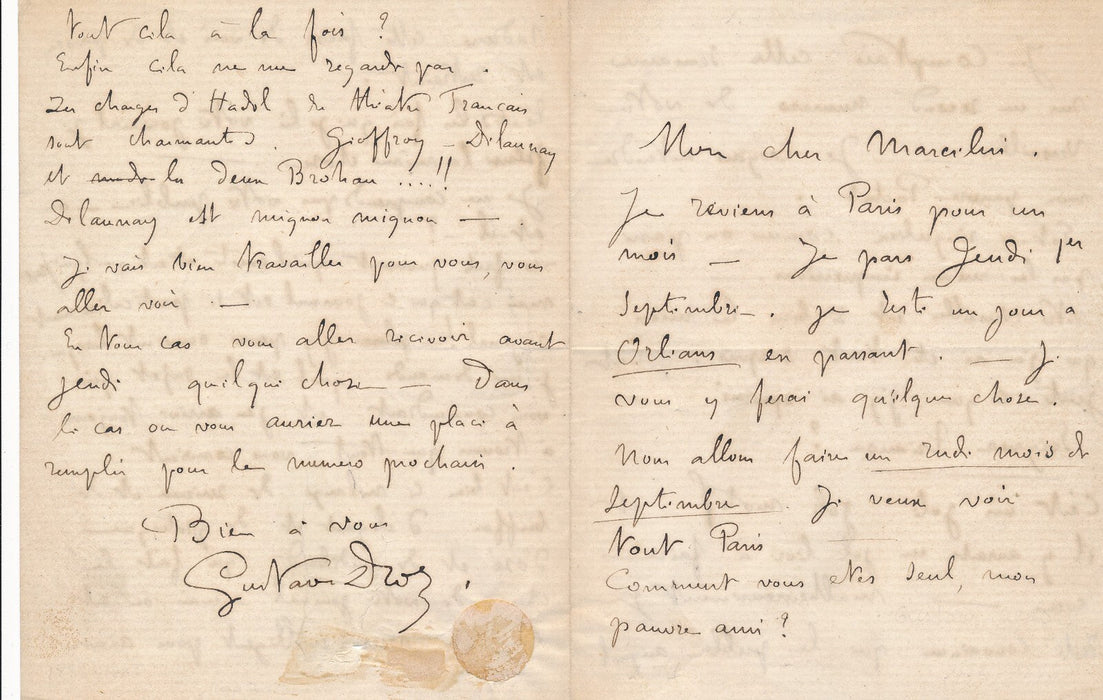 Mon cher Marcelin .
Je reviens à Paris pour un
mois — Je pars Jeudi 1er
Septembre . je reste un jour a
Orléans en passant . — Je
vous y ferai quelque chose .
Nous allons faire un rude mois de
Septembre . Je veux voir
tout Paris —
Comment vous etes seul, mon
pauvre ami ?
Tout cela à la fois ?
Enfin cela ne me regarde pas .
Les charges d'Hadol du théatre Francais
sont charmantes . Geoffroy — Delaunay
et les deux Brohan ....!!
Delaunay est mignon mignon —
Je vais bien travailler pour vous, vous
aller voir . —
En tous cas vous aller recevoir avant
jeudi quelque chose — Dans
le cas ou vous auriez une place à
remplir pour le numero prochain .
Bien à vous
Gustave Droz .